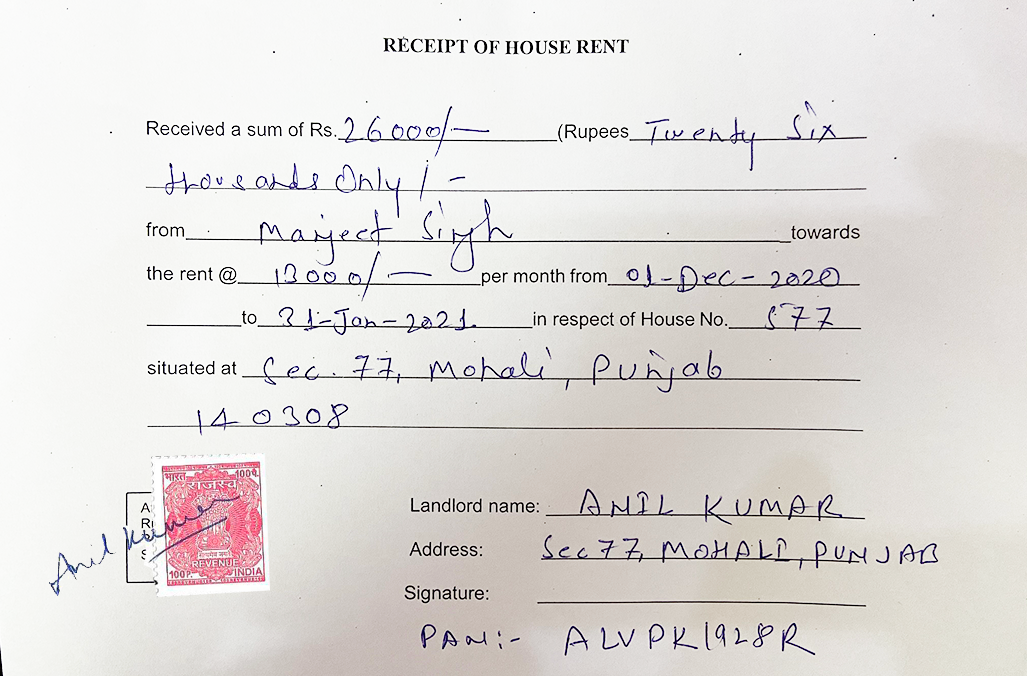 RECEIPT OF HOUSE RENT
Received a sum of Rs. 26000/- (Rupees Twenty Six
thousands Only /-
from Manjeet Singh towards
the rent @ 13000/- per month from 01-Dec-2020
to 31-Jan-2021. in respect of House No. 577
situated at Sec. 77, Mohali, Punjab
140308
भारत 100P.
राजस्व
सत्यमेव जयते
REVENUE
100P. INDIA
Anil Kumar
Landlord name: ANIL KUMAR
Address: Sec 77, MOHALI, PUNJAB
Signature:
PAN:- ALVPK1928R